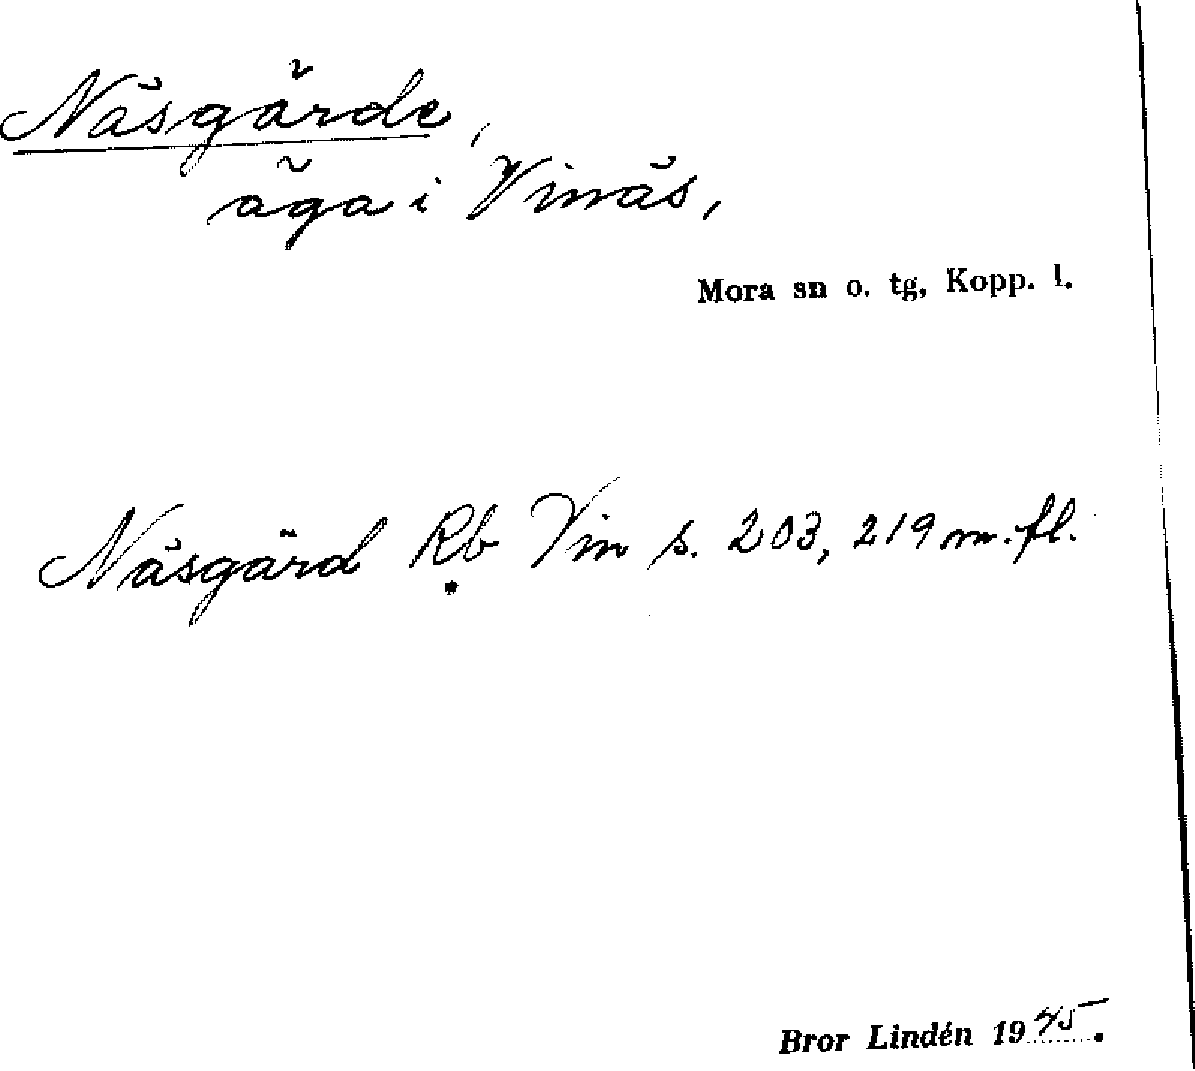 Näsgärde,
äga i Vinäs,
Mora sn o. tg, Kopp. l.
Näsgärd Rb Vin s. 203, 219 m.fl.
Bror Lindén 1945.